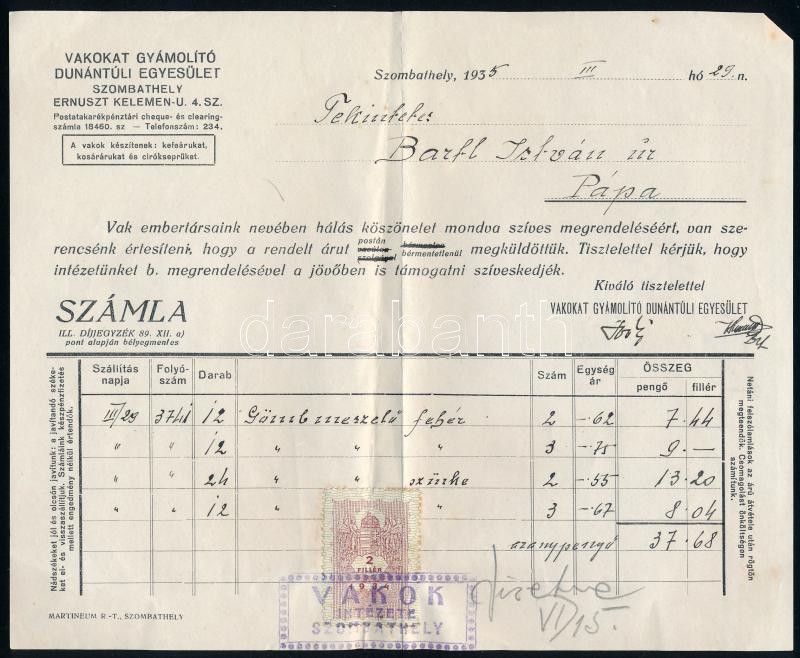 VAKOKAT GYÁMOLÍTÓ
DUNÁNTÚLI EGYESÜLET
SZOMBATHELY
ERNUSZT KELEMEN-U. 4. SZ.
Postatakarékpénztári cheque- és clearing-
számla 18460. sz — Telefonszám: 234.
A vakok készítenek: kefeárukat,
kosárárukat és cirokseprüket.
Szombathely, 1935 III hó 29. n.
Tekintetes
Bartl István úr
Pápa
Vak embertársaink nevében hálás köszönetet mondva szíves megrendeléséért, van sze-
rencsénk értesíteni, hogy a rendelt árut postán bérmentve bérmentetlenül megküldöttük. Tisztelettel kérjük, hogy
intézetünket b. megrendelésével a jövőben is támogatni szíveskedjék.
Kiváló tisztelettel
VAKOKAT GYÁMOLÍTÓ DUNÁNTÚLI EGYESÜLET
SZÁMLA
ILL. DÍJJEGYZÉK 89. XII. a)
pont alapján bélyegmentes
darabanth
Nádszékeket jól és olcsón javítunk; a javítandó széke-
ket el- és visszaszállítjuk. Számláink készpénzfizetés
mellett engedmény nélkül értendők.
Szállítás napja Folyó-szám Darab Szám Egység ár ÖSSZEG
pengő fillér
III/29 12 Gömbmeszelő fehér 2 -·62 7·44
" " 12 " " " 3 -·75 9·—
" " 24 " " szürke 2 -·55 13·20
" " 12 " " " 3 -·67 8·04
aranypengő 37·68
Netáni felszólamlások az árú átvétele után rögtön
megteendők. Csomagolást önköltségen
számítunk.
2
FILLÉR
1934
VAKOK
INTÉZETE
SZOMBATHELY
VI/15.
MARTINEUM R.-T., SZOMBATHELY